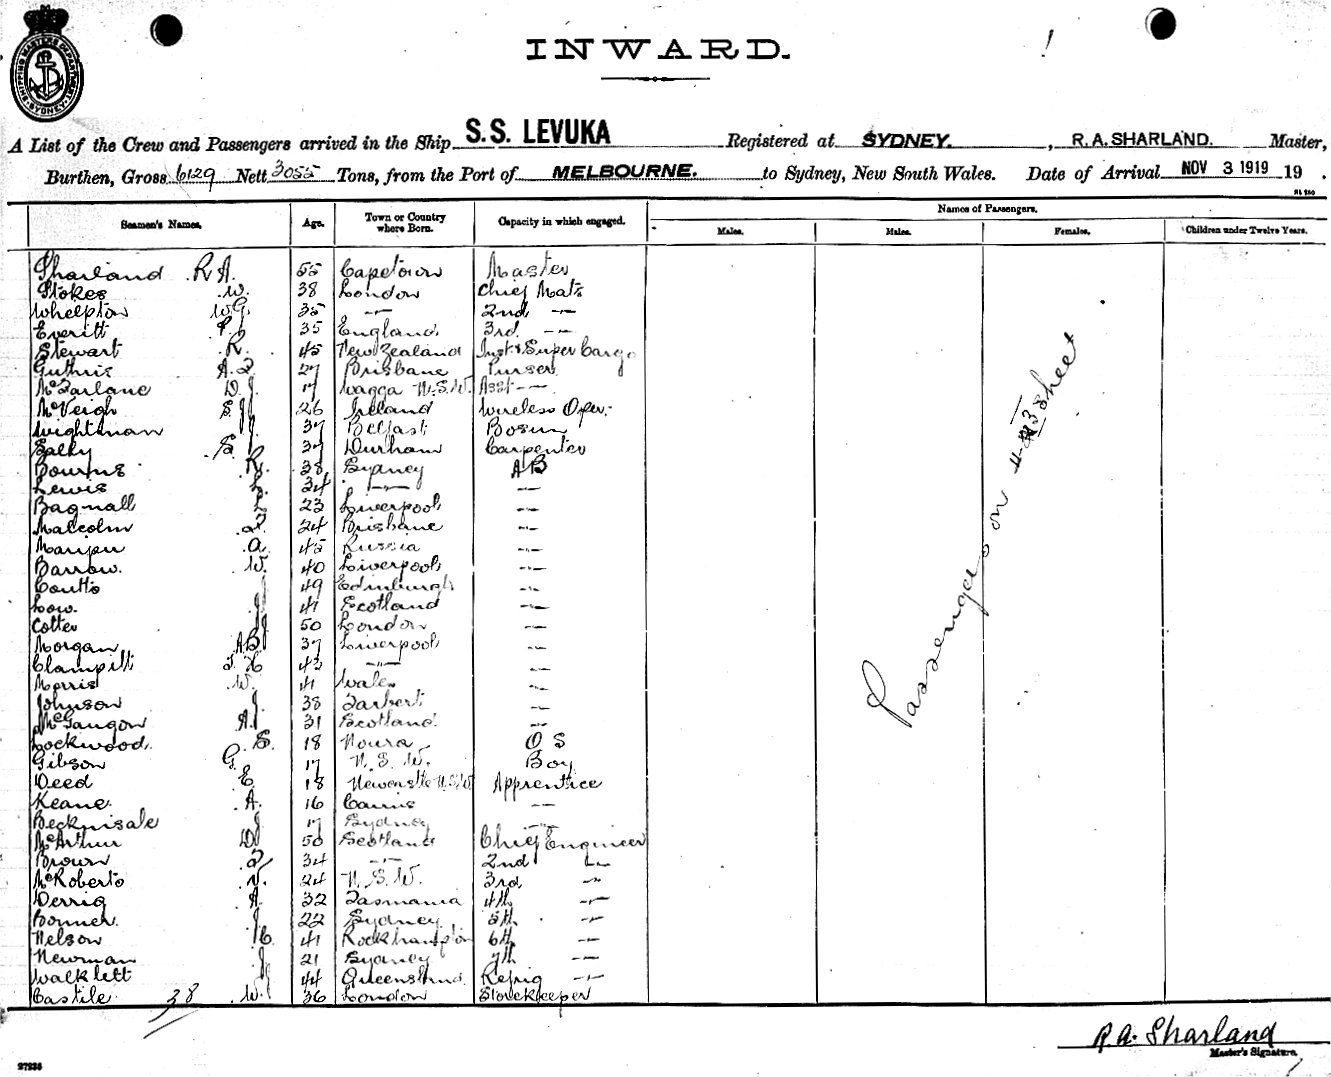 SHIPPING MASTERS DEPARTMENT SYDNEY
INWARD.
A List of the Crew and Passengers arrived in the Ship S.S. LEVUKA Registered at SYDNEY. , R.A. SHARLAND. Master,
Burthen, Gross 6129 Nett 3055 Tons, from the Port of MELBOURNE. to Sydney, New South Wales. Date of Arrival NOV 3 1919 19 .
Seamen's Names. Age. Town or Country where Born. Capacity in which engaged. Names of Passengers.
Males. Males. Females. Children under Twelve Years.
Sharland R A. 55 Capetown Master
Stokes W. 38 London Chief Mate
Whelpton W G. 35 —"— 2nd —
Everitt P. J 35 England 3rd. —"—
Stewart R. 45 New Zealand Super Cargo
Guthrie A. 27 Brisbane Purser
McFarlane D. J 17 Wagga N.S.W. Asst —"—
McVeigh S. J 26 Ireland Wireless Oper.
Wightman J 37 Belfast Bosun
S. 37 Durham Carpenter
Bourne R. 38 Sydney AB
Lewis 34 —"— —"—
Bagnall 23 Liverpool —"—
Malcolm 24 Brisbane —"—
A. 45 Russia —"—
Barrow. W. 40 Liverpool —"—
Coutts J 49 Edinburgh —"—
Low. J 41 Scotland —"—
Cotter J 50 London —"—
Morgan A B 37 Liverpool —"—
Clampitt 43 —"— —"—
Morris W. 41 Wales —"—
Johnson J. 38 Tarbert —"—
McGaugon A. J 31 Scotland —"—
Lockwood. S. 18 Noura O S
Gibson G. 17 N. S. W. Boy
Deed E 18 Newcastle N.S.W Apprentice
Keane. A. 16 Cairns —"—
Becknisale J 17 Sydney —"—
McArthur D 50 Scotland Chief Engineer
Brown 34 —"— 2nd —"—
McRoberts V. 24 N. S. W. 3rd —"—
Derrig A. 32 Tasmania 4th —"—
Bonner. J. 22 Sydney 5th. —"—
Nelson C. 41 Rockhampton 6th —"—
Newman J 21 Sydney 7th —"—
Walklett J 44 Queensland. Refrig —"—
Castile. 38 W. 36 London Storekeeper
Passengers on 3 Sheet
R. A. Sharland
Master's Signature.
97936